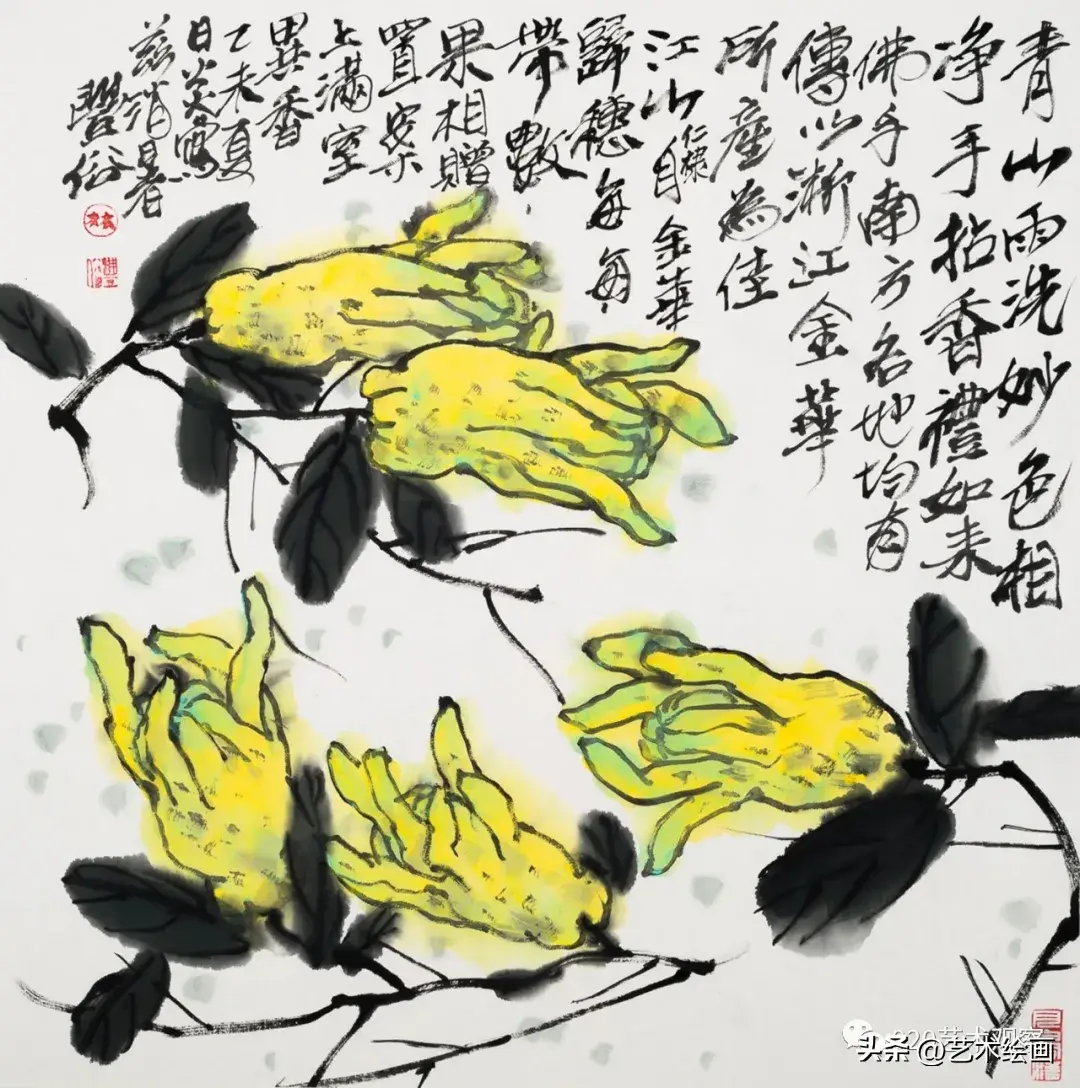 青山雨洗妙色相
净手拈香禮如来
佛手南方各地均有
傳以浙江金華
所產為佳
江山自金華
歸穗每每
帶數
果相贈
置案
上滿室
異香
乙未夏
日炎寫
茲消暑
豐俗
头条 @艺术绘画